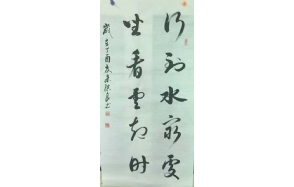 行到水穷处
坐看云起时
岁在丁酉